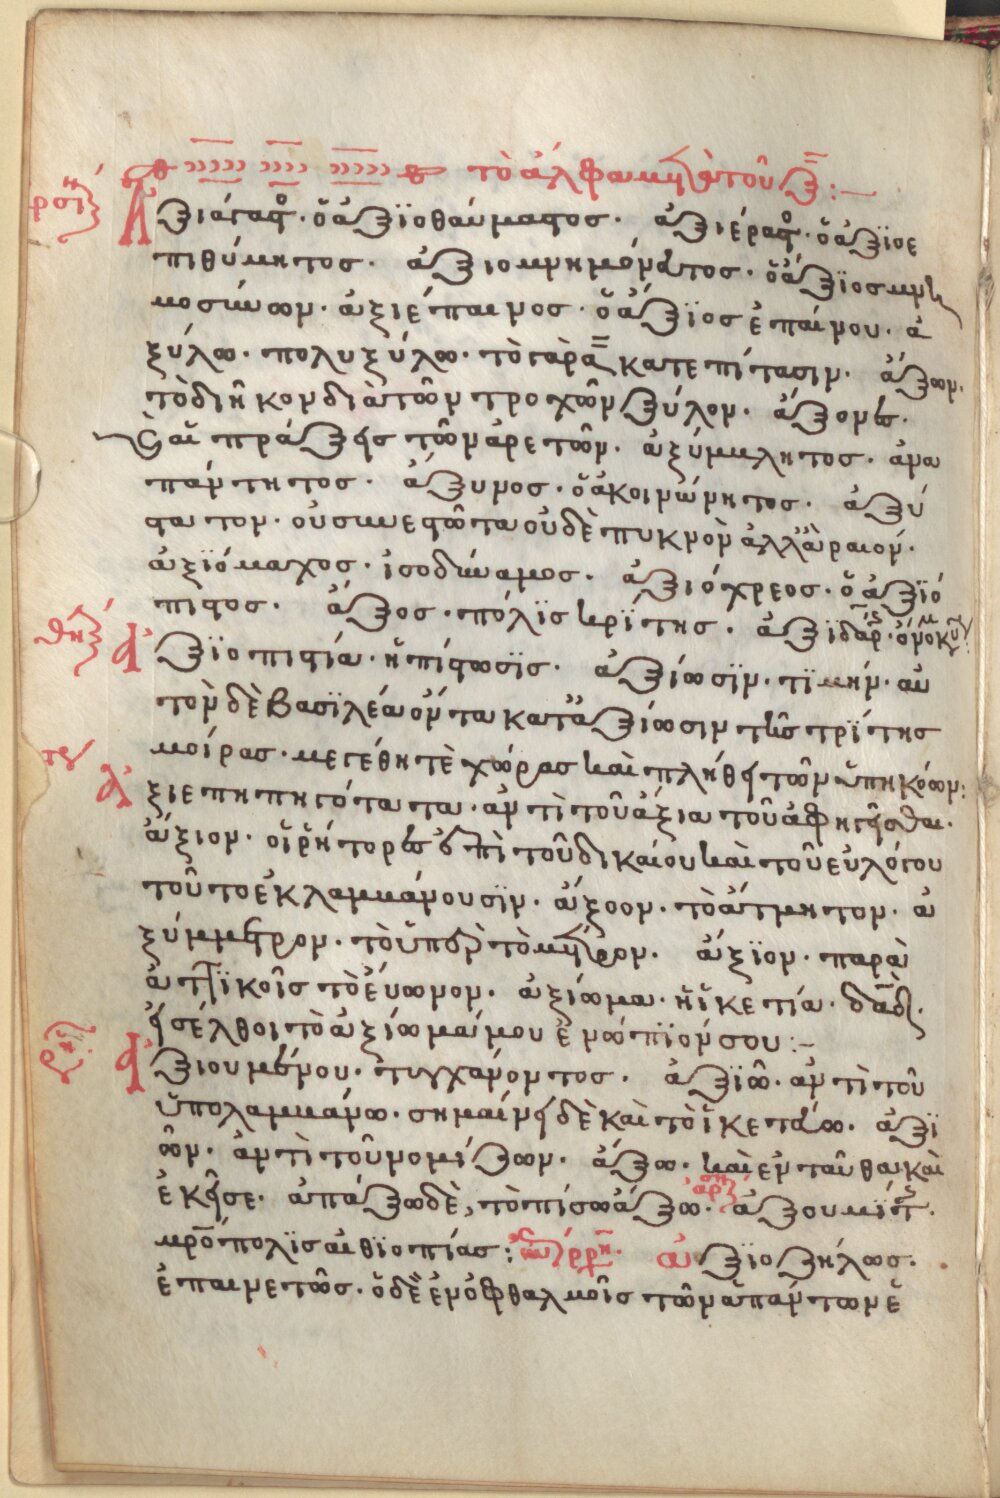 τὸ ἄλφα μετὰ τοῦ ξ:
ἀρσν
Ἀξιάγαστος· ὁ ἀξϊοθαύμαστος· ἀξιέραστος· ὁ ἀξϊοε
πιθύμητος· ἀξιομνημόνευτος· ὁ ἄξϊος μνη
μοσύνων· ἀξιέπαινος· ὁ ἄξϊος ἐπαίνου· ἀ
ξύλω· πολυξύλω· τὸ γὰρ α κατ' ἐπίτασιν· ἄξων·
τὸ διῆκον διὰ τῶν τροχῶν ξύλον· ἄξονες·
καὶ αἱ πράξεις τῶν ἀρετῶν· ἀξύμβλητος· ἀνα
πάντητος· ἄξυνος· ὁ ἀκοινώνητος· ἀξύ
στατον· οὐ συνεστῶτα οὐδὲ πυκνὸν ἀλλ' ἀραιόν·
ἀξϊόμαχος· ἰσοδύναμος· ἀξιόχρεος· ὁ ἀξϊό
πιστος· ἄξος· πόλϊς κρΐτης·
θη
Ἀξϊοπιστία· ἡ πίστωσϊς· ἀξίωσϊν· τϊμήν· αὐ
τὸν δὲ βασϊλέα ὄντα κατ' ἀξίωσιν τῆς τρΐτης
μοίρας· μεγέθη τὲ χώρας καὶ πλήθει τῶν ὑπηκόων:
ουδ
Ἀξιεπηπηγότατα· ἀντὶ τοῦ ἄξια τοῦ ἀφηγεῖσθαι·
ἄξιον· οἱ ῥήτορες ἐπὶ τοῦ δικαίου καὶ τοῦ εὐλόγου
τοῦτο ἐκλαμβάνουσϊν· ἄξοον· τὸ ἄτμητον· ἀ
ξύμμετρον· τὸ ὑπὲρ τὸ μέτρον· ἄξϊον· παρὰ
ἀττϊκοῖς τὸ εὔωνον· ἀξίωμα· ἡ ἱκετία· δαδ·
εἰσέλθοι τὸ ἀξίωμά μου ἐνώπϊόν σου:–
Ἀξιουμένου· τυγχάνοντος· ἀξιῶ· ἀντὶ τοῦ
ὑπολαμβάνω· σημαίνει δὲ καὶ τὸ ἱκετεύω· ἀξϊ
ῶν· ἀντὶ τοῦ νομίζων· ἄξω· καὶ ἐνταῦθα καὶ
ἐκεῖσε· ἀπάξω δὲ, τὸ πίσω ἄξω· ἀξουμΐτης·
μρο πόλϊς αἰθϊοπίας: ἀξϊοζήλως·
ἐπαινετῶς· ὁ δὲ ἐν ὀφθαλμοῖς τῶν ἁπάντων ἐ